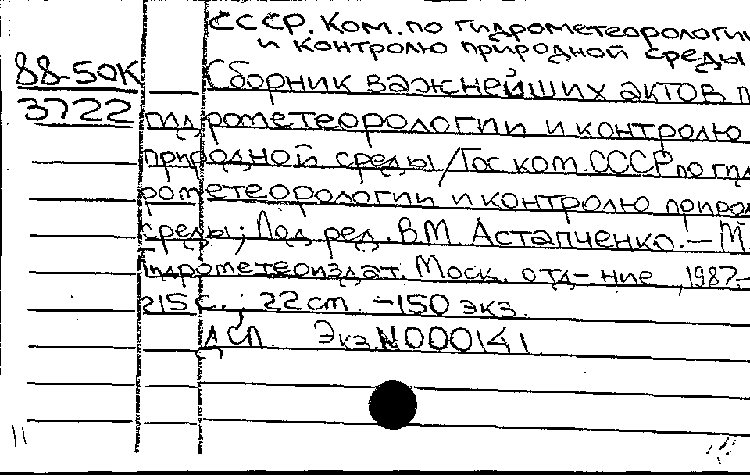 СССР. Ком. по гидрометеорологии
и контролю природной среды
88-50К Сборник важнейших актов п
3722 гидрометеорологии и контролю
природной среды / Гос ком. СССР по гид
рометеорологии и контролю природ
среды; Под ред. В.М. Астапченко. – М
Гидрометеоиздат. Моск. отд-ние, 1987. –
215 с.; 22 cm. – 150 экз.
ДСП Экз N000141